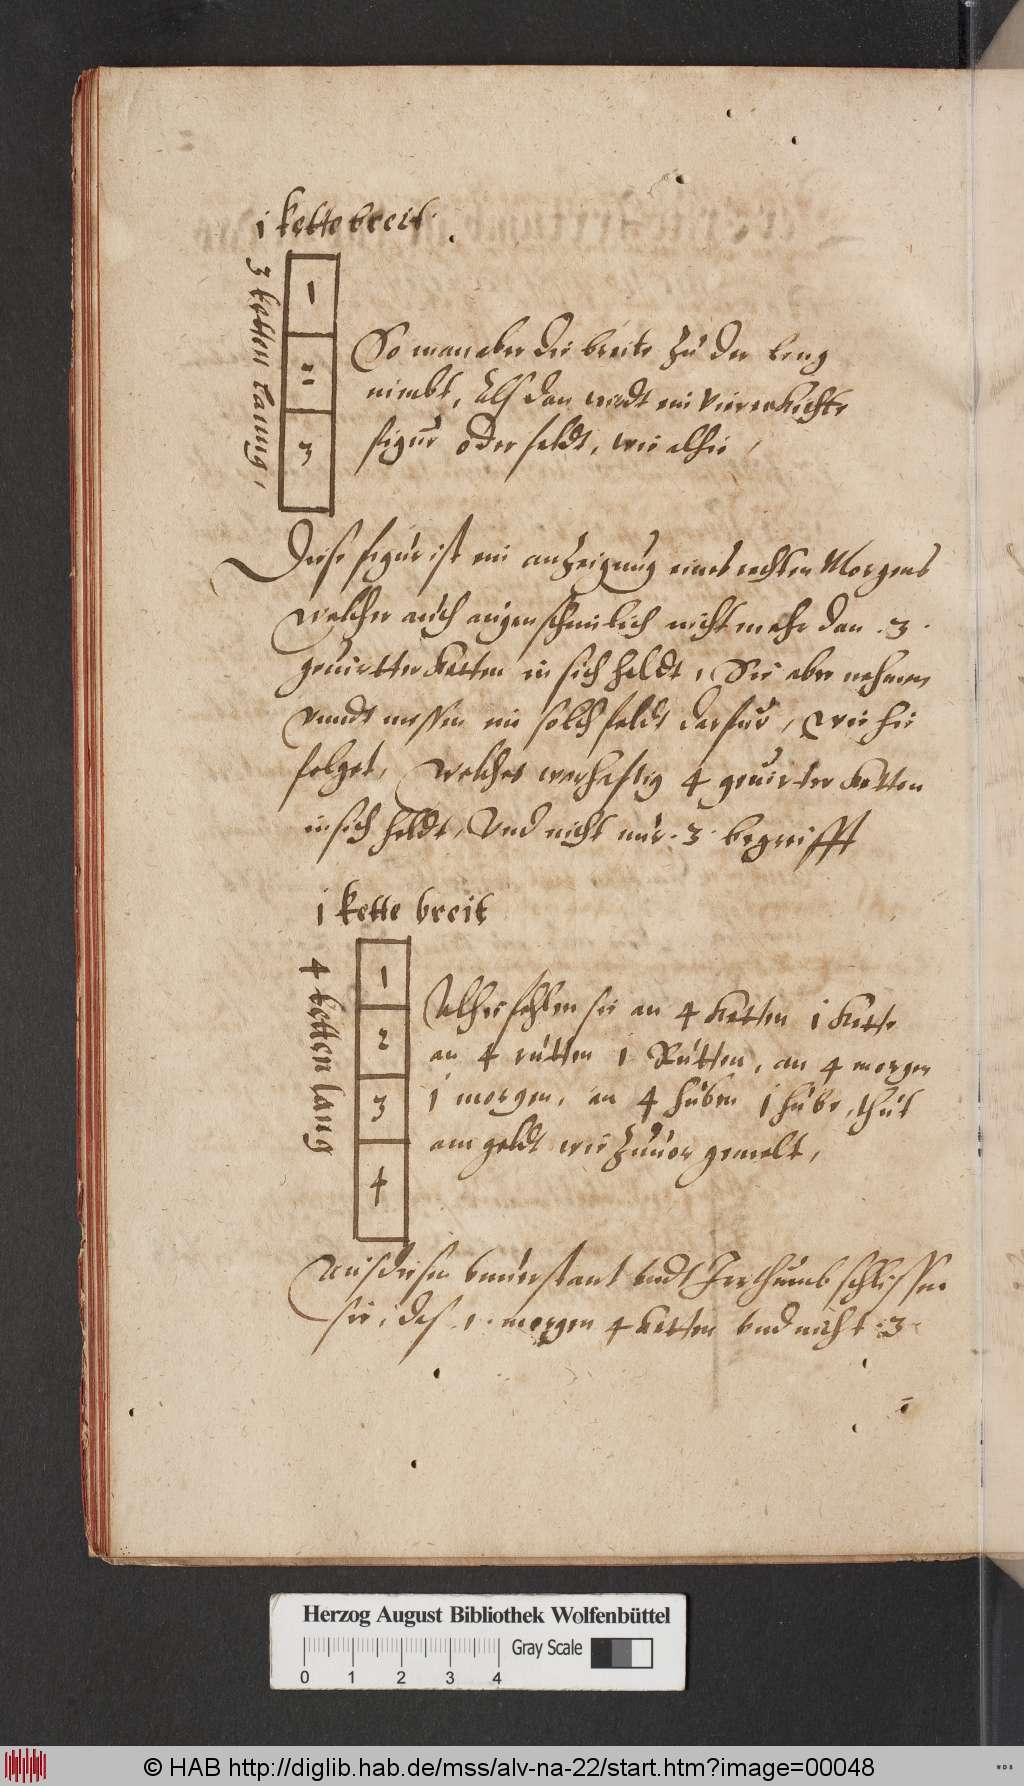 1 kette breit.
3 ketten lanng,
1
2
3
So man aber die breite zu der leng
nimbt, Alß dan wirdt ein Vierecküchte
figur oder feldt, wie alhie,
Diese figur ist ein anzeigung eines rechten Morgens
welcher auch augenscheinlich nicht mehr dan .3.
geuirtter ketten in sich heldt, Sie aber nehmen
vnndt messen ein solch feldt darfur, wie hie
folget, welches warhafftig 4 geuirter ketten
in sich heldt, Und nicht nur .3. begreifft
1 kette breit
4 ketten lang
1
2
3
4
Alhie fehlen sie an 4 ketten 1 kette
an 4 rutten 1 Rutten, an 4 morgen
1 morgen, an 4 huben 1 hube, thut
am geldt wie zuuor gemelt,
Aus diesem vnuerstant vndt Irrthumb schlissen
sie, das .1. morgen 4 ketten vnd nicht .3.
Herzog August Bibliothek Wolfenbüttel
Gray Scale
0 1 2 3 4
© HAB http://diglib.hab.de/mss/alv-na-22/start.htm?image=00048